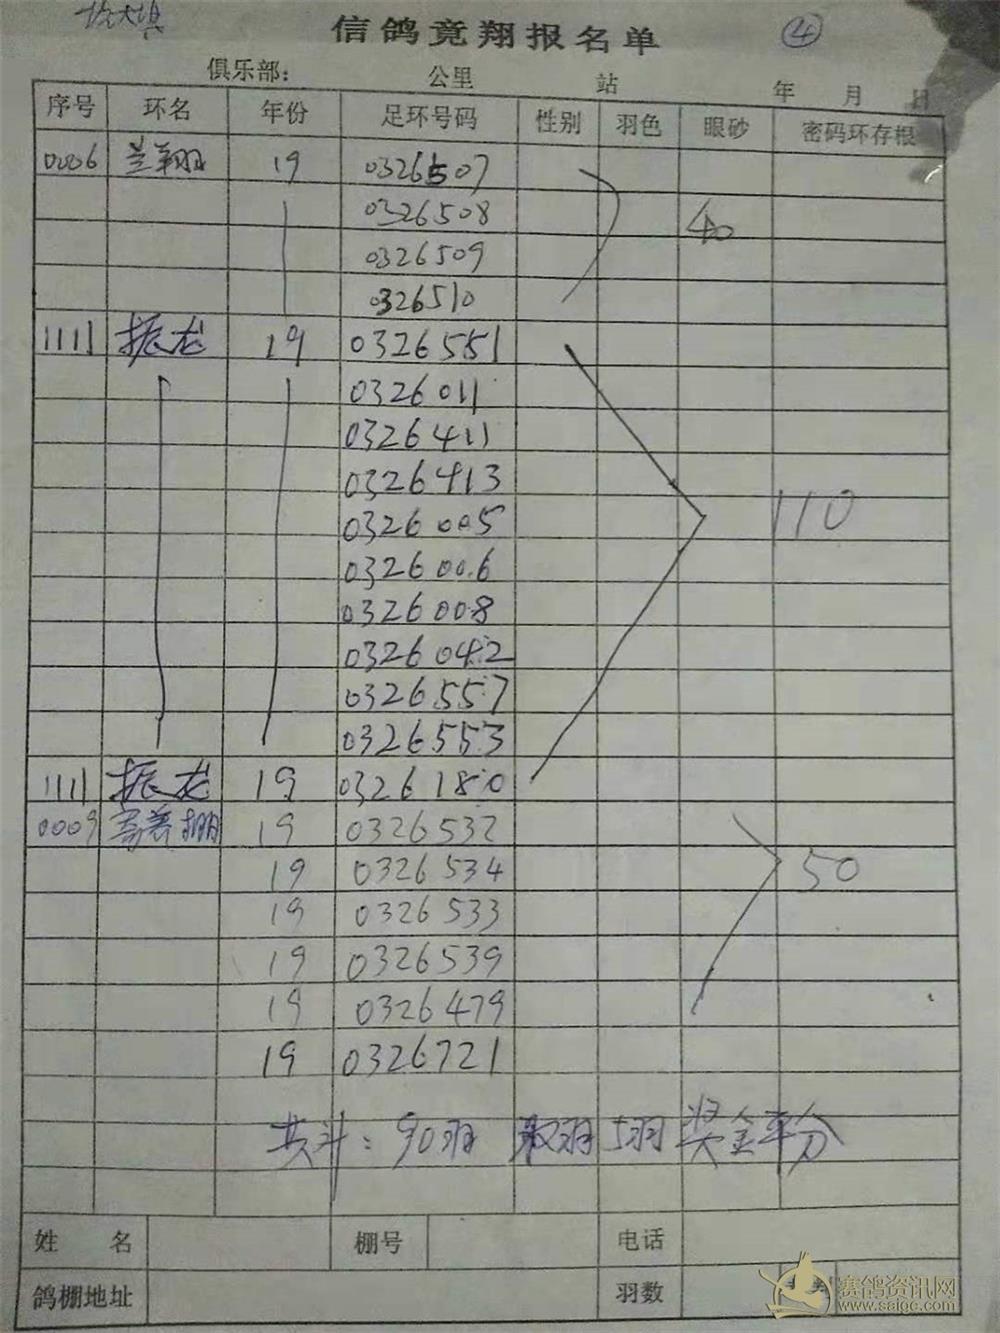 信鸽竞翔报名单 ④
俱乐部： 公里 站 年 月 日
序号 环名 年份 足环号码 性别 羽色 眼砂 密码环存根
0006 兰翔 19 0326507
0326508 40
0326509
0326510
1111 振龙 19 0326551
0326011
0326411
0326413
0326005 110
0326006
0326008
0326042
0326557
0326553
1111 振龙 19 0326180
0009 寄养棚 19 0326532
19 0326534 50
19 0326533
19 0326539
19 0326479
19 0326721
共计：90羽 取羽5羽 奖金平分
姓 名 棚号 电话
鸽棚地址 羽数
赛鸽资讯网
www.saige.com